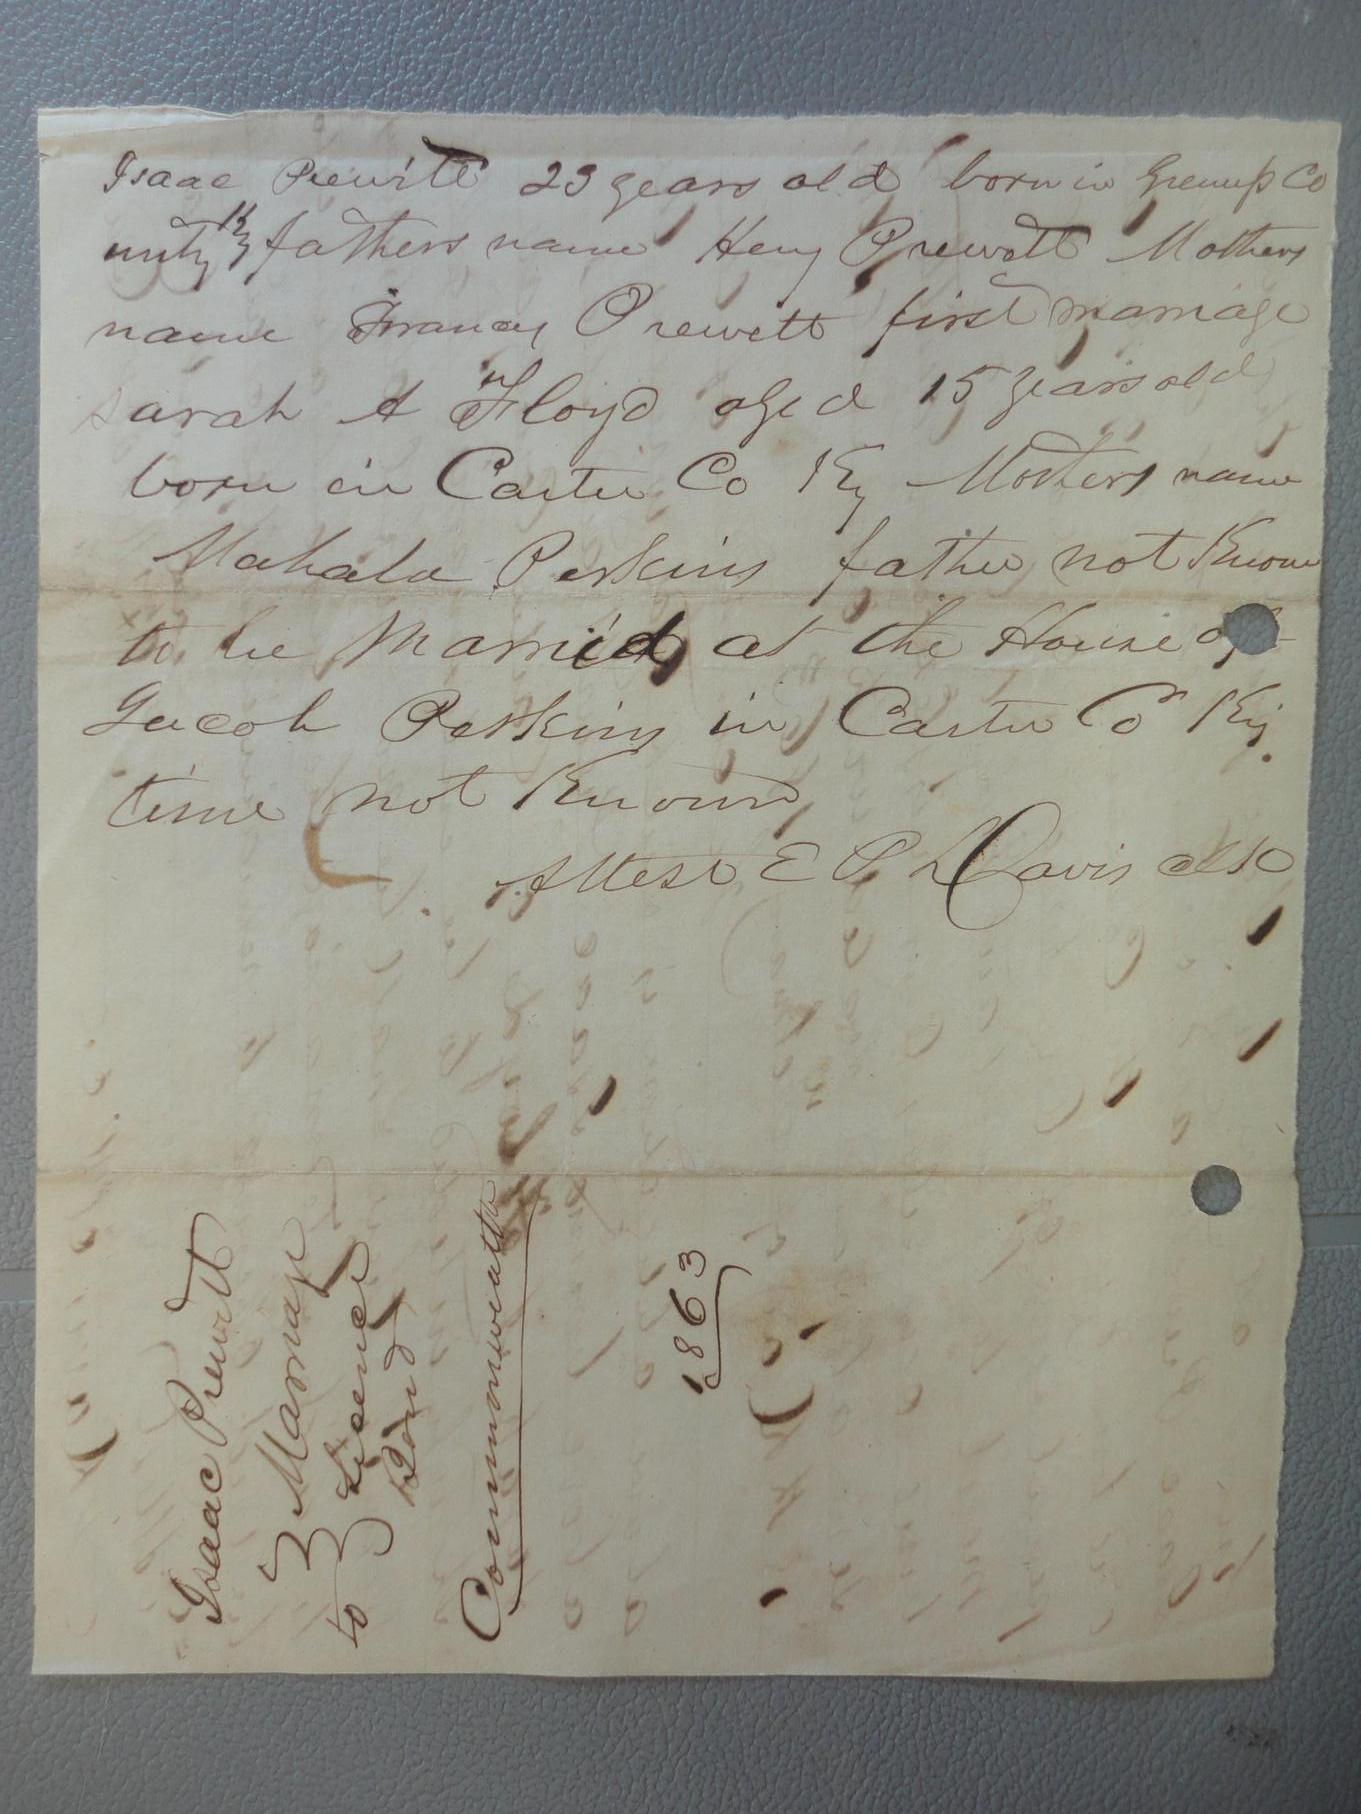 Isaac Prewitt 23 years old born in Greenup Co
unty Ky fathers name Heny Prewett Mothers
name Francy Prewett first marriage
Sarah A Floyd aged 15 years old
born in Carter Co Ky Mothers name
Mahala Perkins father not Known
to be Married at the House of
Jacob Perkins in Carter Co Ky.
time not Known
Attest E P Davis clk
Isaac Prewitt
to } Marriage
Licence
Bond
Commonwealth
1863